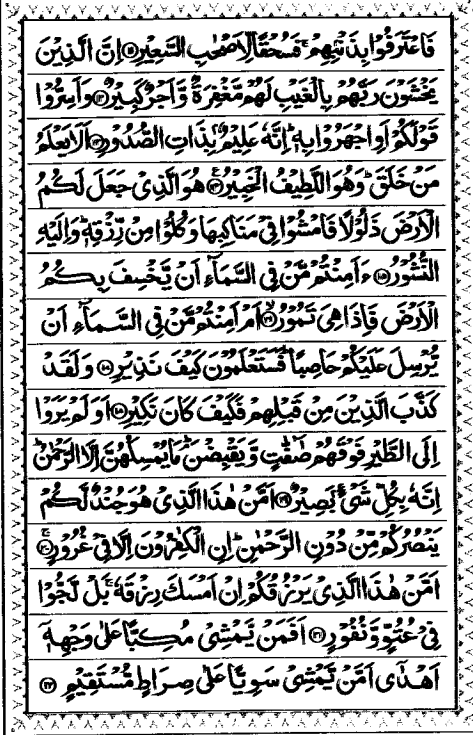 فَاعْتَرَفُوْا بِذَنْۢبِهِمْ ۚ فَسُحْقًا لِّاَصْحٰبِ السَّعِيْرِ ﴿۱۱﴾ اِنَّ الَّذِيْنَ
يَخْشَوْنَ رَبَّهُمْ بِالْغَيْبِ لَهُمْ مَّغْفِرَةٌ وَّاَجْرٌ كَبِيْرٌ ﴿۱۲﴾ وَاَسِرُّوْا
قَوْلَكُمْ اَوِ اجْهَرُوْا بِهٖ ؕ اِنَّهٗ عَلِيْمٌۢ بِذَاتِ الصُّدُوْرِ ﴿۱۳﴾ اَلَا يَعْلَمُ
مَنْ خَلَقَ ؕ وَهُوَ اللَّطِيْفُ الْخَبِيْرُ ﴿۱۴﴾ هُوَ الَّذِيْ جَعَلَ لَكُمُ
الْاَرْضَ ذَلُوْلًا فَامْشُوْا فِيْ مَنَاكِبِهَا وَكُلُوْا مِنْ رِّزْقِهٖ ؕ وَاِلَيْهِ
النُّشُوْرُ ﴿۱۵﴾ ءَاَمِنْتُمْ مَّنْ فِي السَّمَآءِ اَنْ يَّخْسِفَ بِكُمُ
الْاَرْضَ فَاِذَا هِيَ تَمُوْرُ ﴿۱۶﴾ اَمْ اَمِنْتُمْ مَّنْ فِي السَّمَآءِ اَنْ
يُّرْسِلَ عَلَيْكُمْ حَاصِبًا ؕ فَسَتَعْلَمُوْنَ كَيْفَ نَذِيْرِ ﴿۱۷﴾ وَلَقَدْ
كَذَّبَ الَّذِيْنَ مِنْ قَبْلِهِمْ فَكَيْفَ كَانَ نَكِيْرِ ﴿۱۸﴾ اَوَلَمْ يَرَوْا
اِلَى الطَّيْرِ فَوْقَهُمْ صٰٓفّٰتٍ وَّيَقْبِضْنَ ؕ مَا يُمْسِكُهُنَّ اِلَّا الرَّحْمٰنُ ؕ
اِنَّهٗ بِكُلِّ شَيْءٍۢ بَصِيْرٌ ﴿۱۹﴾ اَمَّنْ هٰذَا الَّذِيْ هُوَ جُنْدٌ لَّكُمْ
يَنْصُرُكُمْ مِّنْ دُوْنِ الرَّحْمٰنِ ؕ اِنِ الْكٰفِرُوْنَ اِلَّا فِيْ غُرُوْرٍ ﴿۲۰﴾
اَمَّنْ هٰذَا الَّذِيْ يَرْزُقُكُمْ اِنْ اَمْسَكَ رِزْقَهٗ ۚ بَلْ لَّجُّوْا
فِيْ عُتُوٍّ وَّنُفُوْرٍ ﴿۲۱﴾ اَفَمَنْ يَّمْشِيْ مُكِبًّا عَلٰى وَجْهِهٖٓ
اَهْدٰٓى اَمَّنْ يَّمْشِيْ سَوِيًّا عَلٰى صِرَاطٍ مُّسْتَقِيْمٍ ﴿۲۲﴾